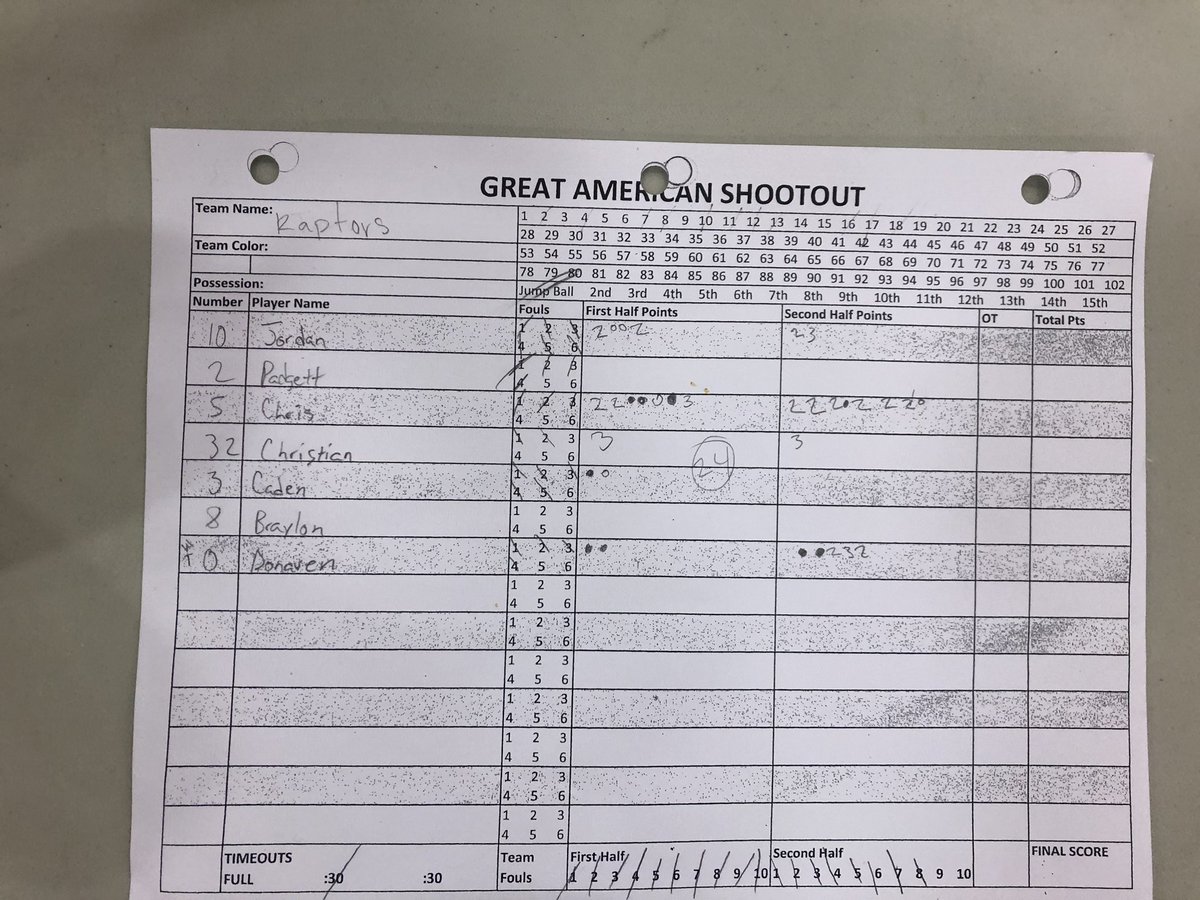 GREAT AMERICAN SHOOTOUT
Team Name: Raptors
1 2 3 4 5 6 7 8 9 10 11 12 13 14 15 16 17 18 19 20 21 22 23 24 25 26 27
28 29 30 31 32 33 34 35 36 37 38 39 40 41 42 43 44 45 46 47 48 49 50 51 52
Team Color:
53 54 55 56 57 58 59 60 61 62 63 64 65 66 67 68 69 70 71 72 73 74 75 76 77
78 79 80 81 82 83 84 85 86 87 88 89 90 91 92 93 94 95 96 97 98 99 100 101 102
Possession: Jump Ball 2nd 3rd 4th 5th 6th 7th 8th 9th 10th 11th 12th 13th 14th 15th
Number Player Name Fouls First Half Points Second Half Points OT Total Pts
10 Jordan 1 2 3 2002 23
4 5 6
2 Padgett 1 2 3
4 5 6
5 Chris 1 2 3 22 3 222
4 5 6
32 Christian 1 2 3 3 3
4 5 6 24
3 Caden 1 2 3
4 5 6
8 Braylon 1 2 3
4 5 6
0 Donaven 1 2 3 232
4 5 6
1 2 3
4 5 6
1 2 3
4 5 6
1 2 3
4 5 6
1 2 3
4 5 6
1 2 3
4 5 6
1 2 3
4 5 6
1 2 3
4 5 6
TIMEOUTS Team First Half Second Half FINAL SCORE
FULL :30 :30 Fouls 1 2 3 4 5 6 7 8 9 10 1 2 3 4 5 6 7 8 9 10